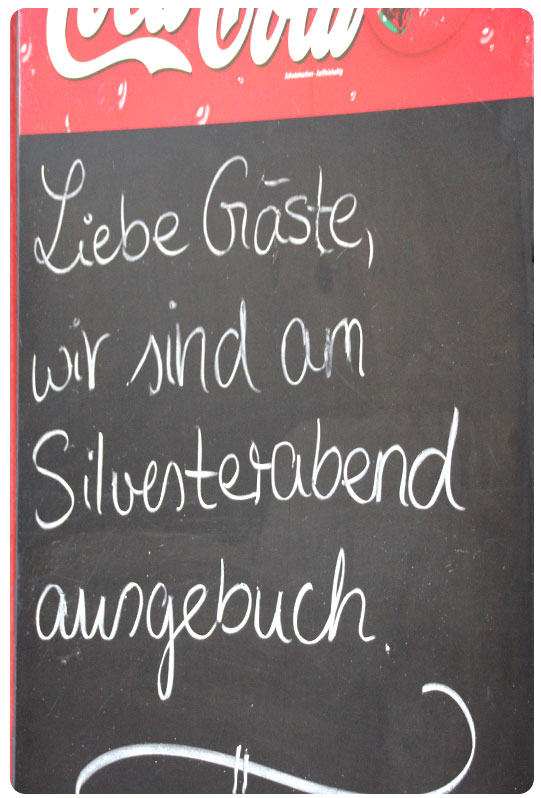 Coca-Cola
Liebe Gäste,
wir sind am
Silvesterabend
ausgebuch.